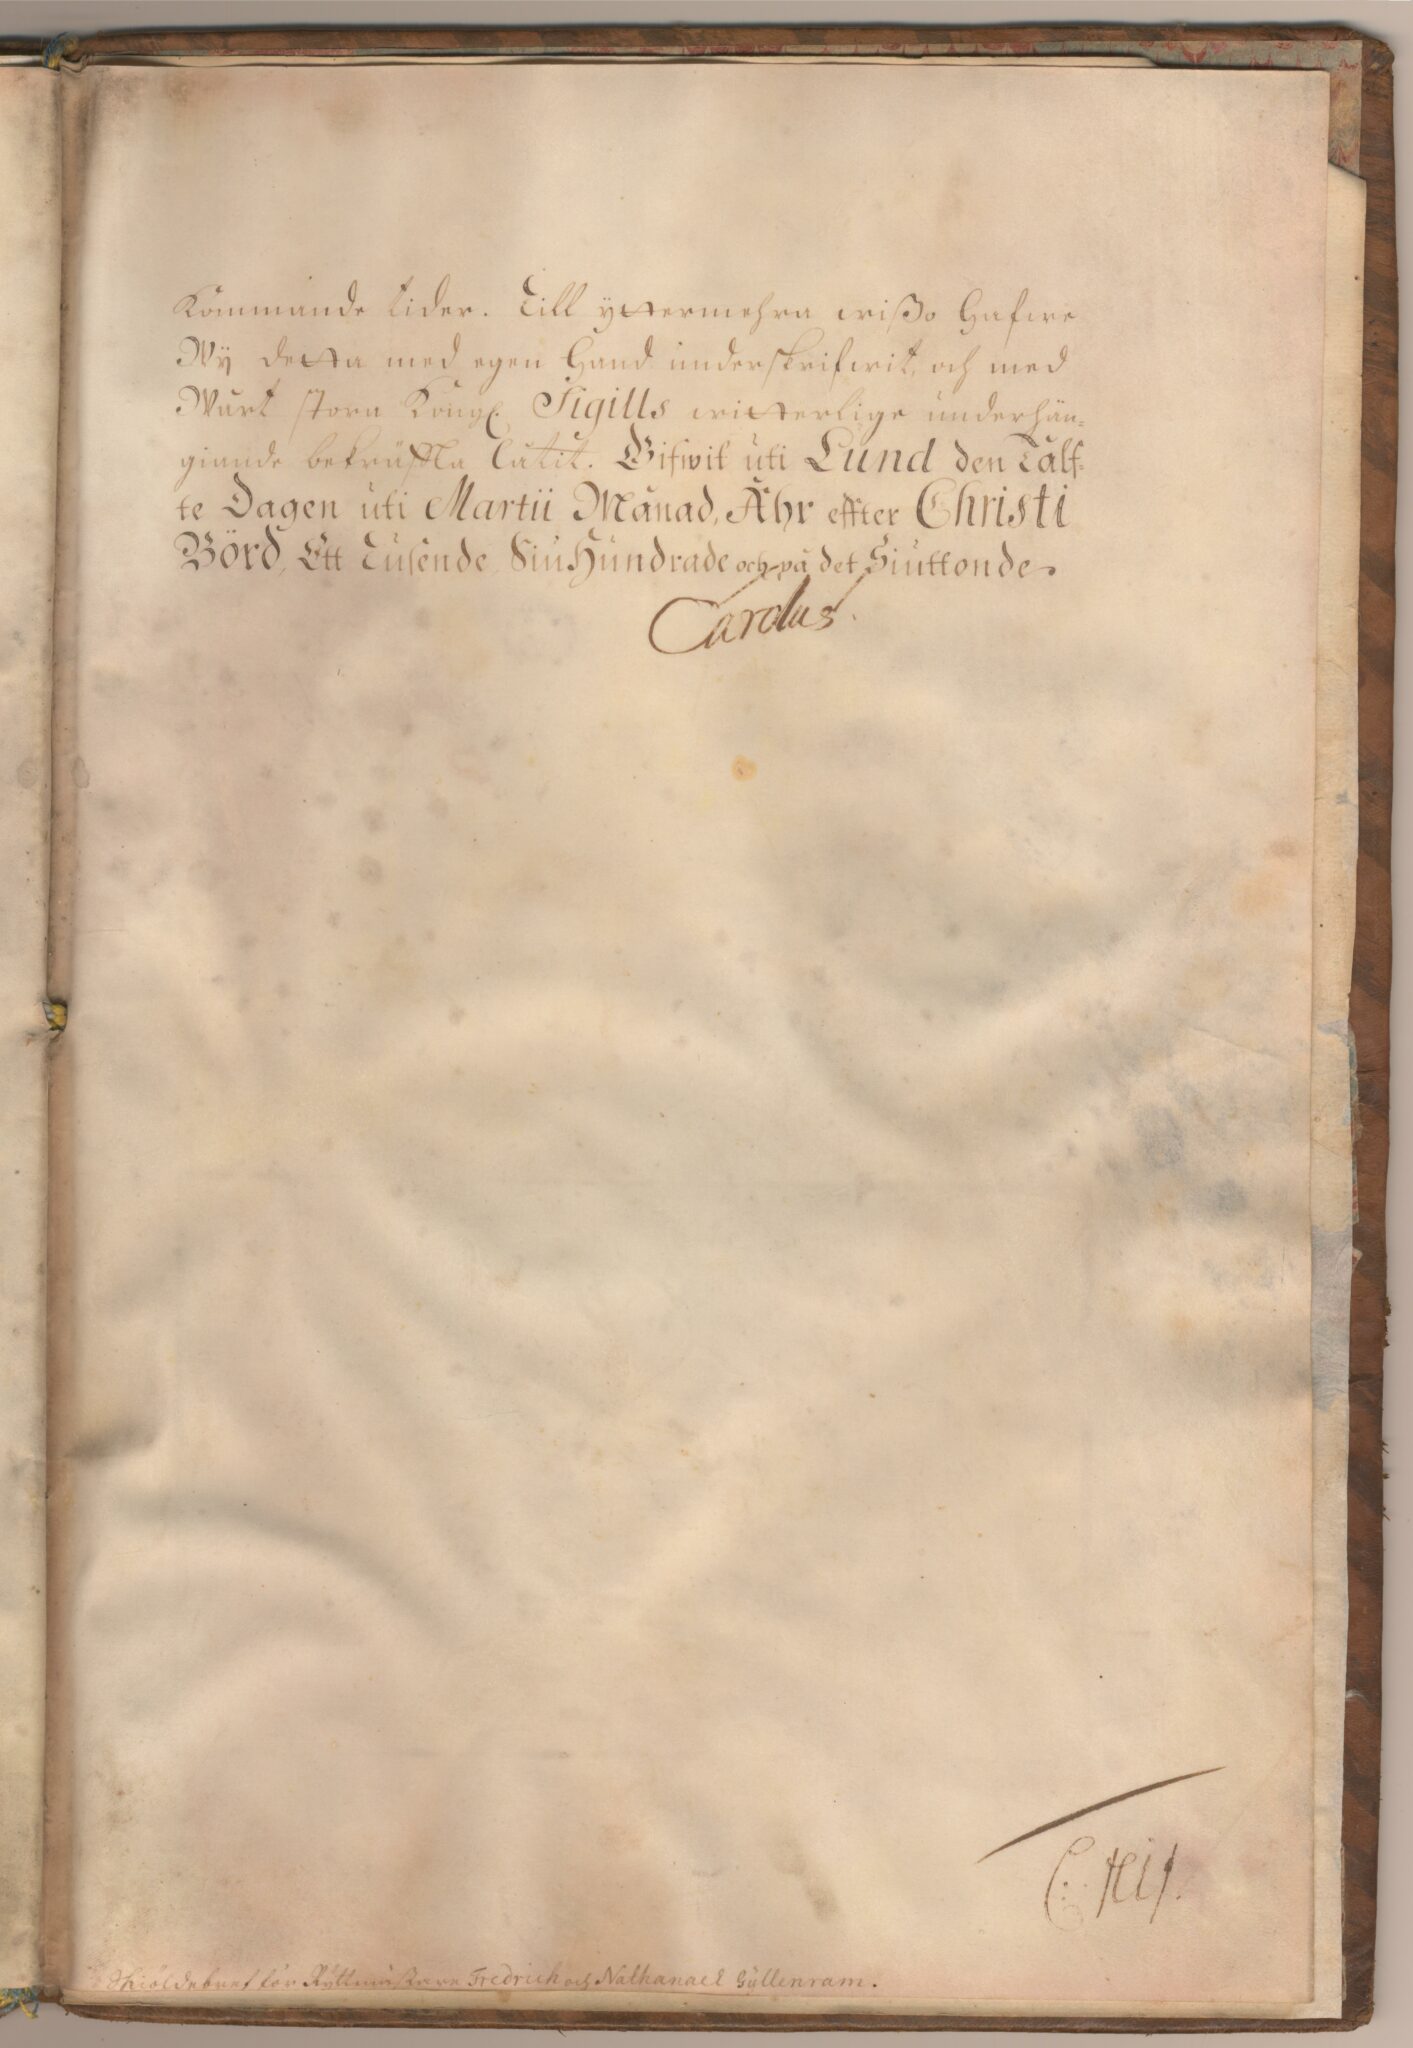 Kommande tider. Till yttermehra wißo hafwe
Wÿ detta med egen hand underskrifwit, och med
Wårt stora Kongl. Sigills witterlige underhän-
giande bekräffta låtit. Gifwit uti Lund den Tålf-
te Dagen uti Martii Månad, Åhr effter Christi
Börd, Ett Tusende Siu Hundrade och på det Siuttonde.
Carolus.
Skiöldebref för Ryttmästare Fredrich och Nathanael Gyllenram.